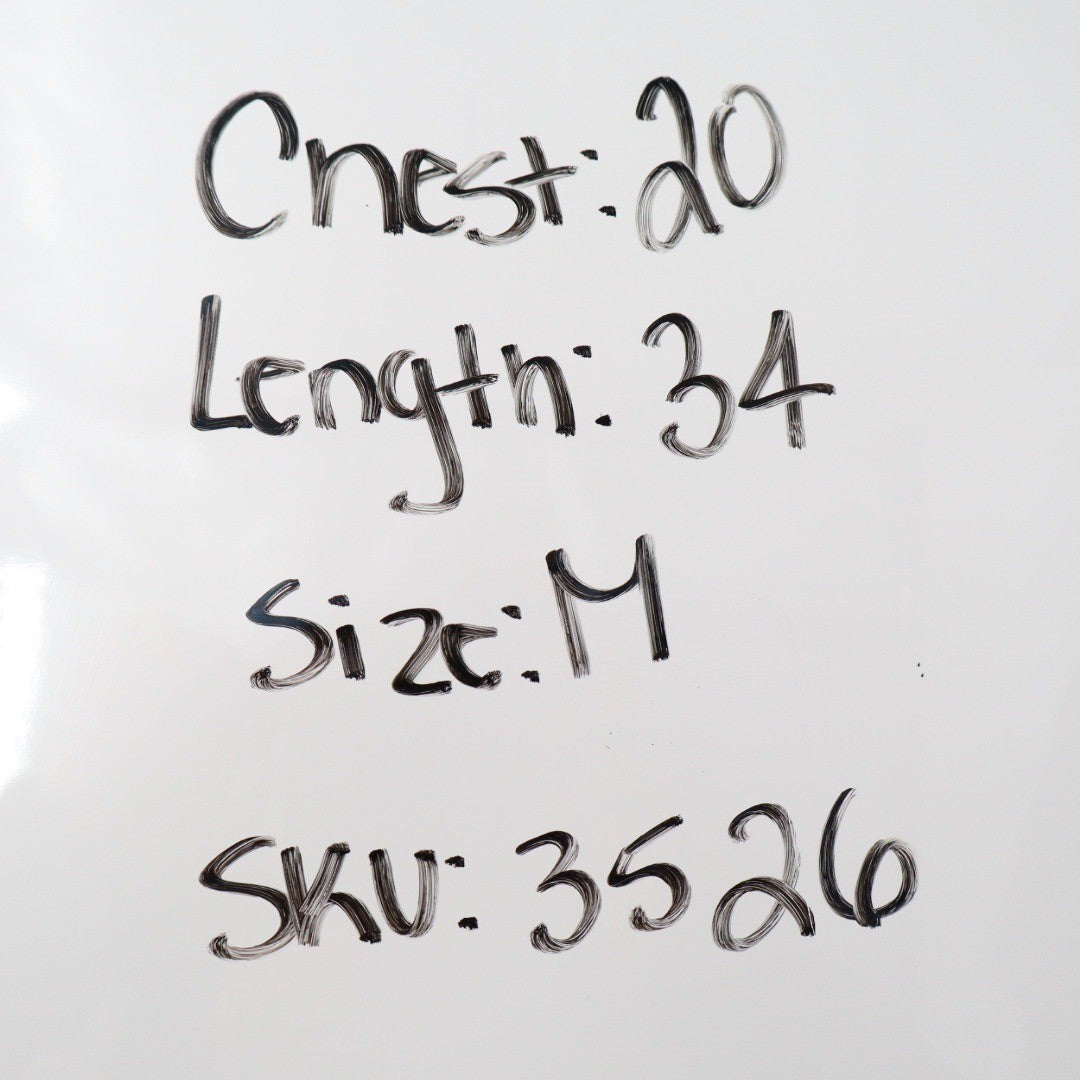 Chest: 20
Length: 34
Size: M
SKU: 3526